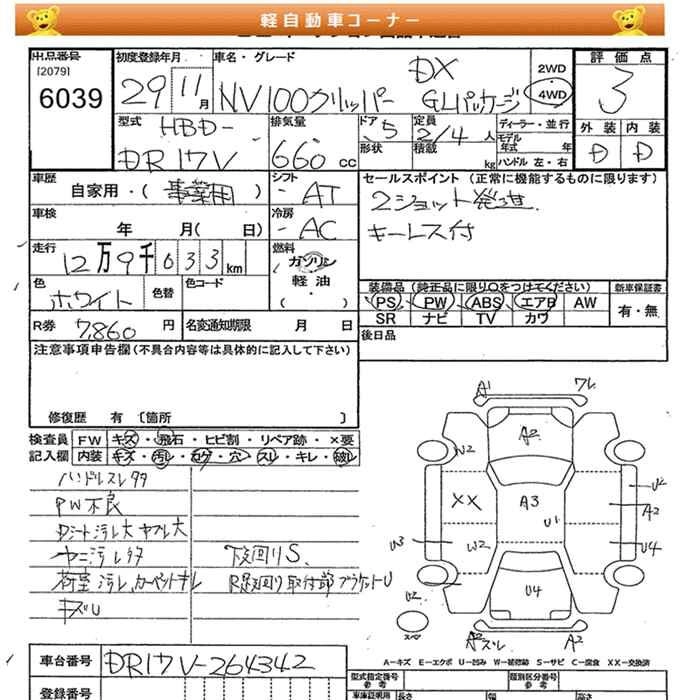 軽自動車コーナー
出品番号
[2079]
6039
初度登録年月
29 11月
車名・グレード
NV100クリッパー
DX
GLパッケージ
2WD
4WD
評価点
3
外装 内装
D D
型式
HBD-
DR17V
排気量
660 cc
ドア
5
形状
定員
2/4 人
積載
kg
ディーラー・並行
モデル年式 年
ハンドル 左・右
車歴
自家用・(事業用)
シフト
AT
車検
年 月( 日)
冷房
AC
走行
12万9千633km
燃料
ガソリン
軽油
( ・ )
色
ホワイト
色替
色コード
R券
7,860 円
名変通知期限 月 日
セールスポイント(正常に機能するものに限ります)
2ショット発送
キーレス付
装備品(純正品に限り○をつけてください)
PS PW ABS エアB AW
SR ナビ TV カワ
新車保証書
有・無
後日品
注意事項申告欄(不具合内容等は具体的に記入して下さい)
修復歴 有 〔箇所 〕
検査員
記入欄
FW キズ・飛石・ヒビ割・リペア跡・×要
内装 キズ・汚レ・コゲ・穴・スレ・キレ・破レ
ハンドルスレタタ
PW不良
Dシート汚レ大ヤブレ大
ヤニ汚レタタ
荷室汚レ、カーペットキレ
キズU
下廻りS、
R足廻り取付部ブラケットU
A1
ワレ
A2
W2
XX
A3
U1
U2
A2
U3
W2
U4
U4
U2
スペア
A2スレ
A2
A-キズ E-エクボ U-凹み W-補修跡 S-サビ C-腐食 XX-交換済
車台番号
DR17V-264342
登録番号
型式指定番号
参考
類別区分番号
参考
車庫証明用
長さ
幅
高さ